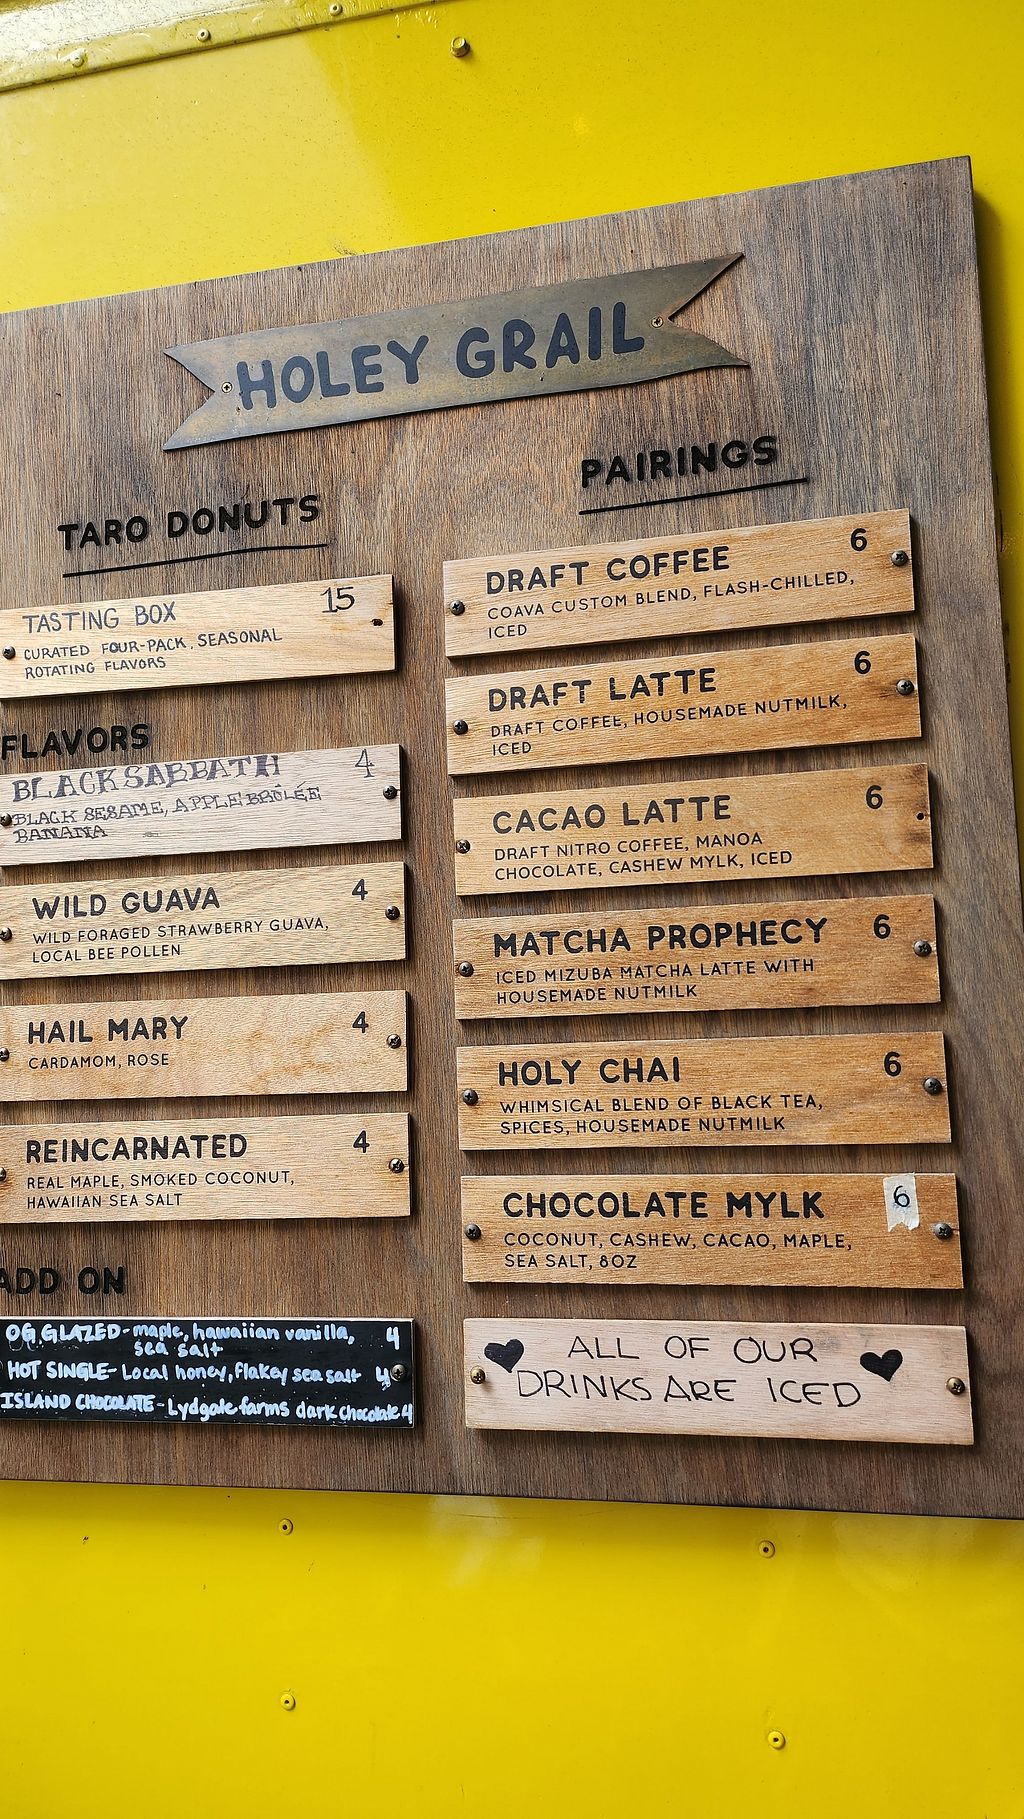 HOLEY GRAIL
TARO DONUTS
TASTING BOX 15
CURATED FOUR-PACK, SEASONAL
ROTATING FLAVORS
FLAVORS
BLACK SABBATH 4
BLACK SESAME, APPLE BRÛLÉE
BANANA
WILD GUAVA 4
WILD FORAGED STRAWBERRY GUAVA,
LOCAL BEE POLLEN
HAIL MARY 4
CARDAMOM, ROSE
REINCARNATED 4
REAL MAPLE, SMOKED COCONUT,
HAWAIIAN SEA SALT
ADD ON
OG GLAZED- maple, hawaiian vanilla, 4
sea salt
HOT SINGLE- Local honey, flakey sea salt 4
ISLAND CHOCOLATE - Lydgate farms dark chocolate 4
PAIRINGS
DRAFT COFFEE 6
COAVA CUSTOM BLEND, FLASH-CHILLED,
ICED
DRAFT LATTE 6
DRAFT COFFEE, HOUSEMADE NUTMILK,
ICED
CACAO LATTE 6
DRAFT NITRO COFFEE, MANOA
CHOCOLATE, CASHEW MYLK, ICED
MATCHA PROPHECY 6
ICED MIZUBA MATCHA LATTE WITH
HOUSEMADE NUTMILK
HOLY CHAI 6
WHIMSICAL BLEND OF BLACK TEA,
SPICES, HOUSEMADE NUTMILK
CHOCOLATE MYLK 6
COCONUT, CASHEW, CACAO, MAPLE,
SEA SALT, 8OZ
ALL OF OUR
DRINKS ARE ICED